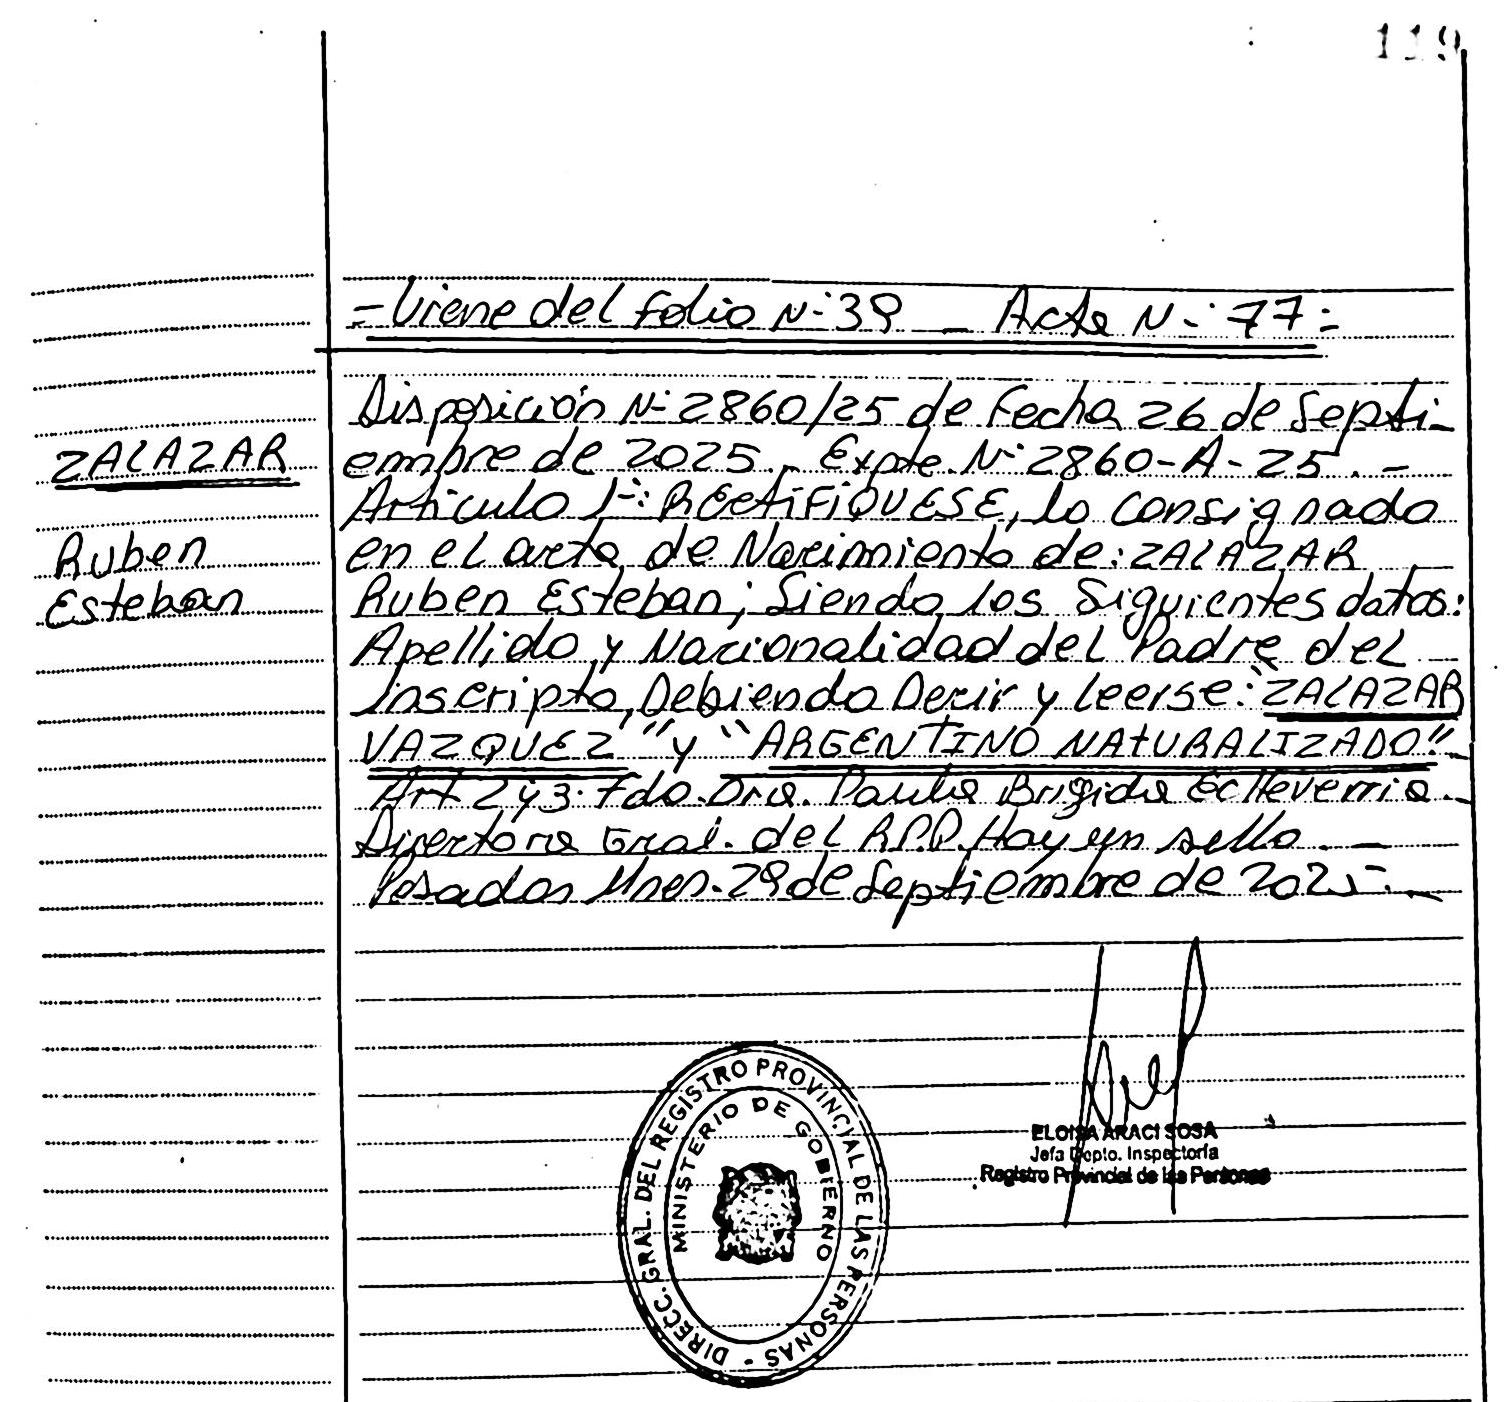 119
- Viene del folio N-º 39 - Acta N-º 77 -
Disposición N-º 2860/25 de Fecha 26 de Septi-
embre de 2025. Expte. N-º 2860-A-25. -
Artículo 1-º: RECTIFIQUESE, lo consignado
en el acta de Nacimiento de: ZALAZAR
Ruben Esteban; Siendo los Siguientes datos:
Apellido y Nacionalidad del Padre del
inscripto, Debiendo Decir y leerse: "ZALAZAR
VAZQUEZ" y "ARGENTINO NATURALIZADO"-
Art 2 y 3. Fdo. Dra. Paula Brigida Echeverria.-
Directora Gral. del R.P.P. Hay un sello. -
Posadas Mnes. 29 de Septiembre de 2025. -
ZALAZAR
Ruben
Esteban
DIRECC. GRAL. DEL REGISTRO PROVINCIAL DE LAS PERSONAS -
MINISTERIO DE GOBIERNO
ELOISA ARACI SOSA
Jefa Depto. Inspectoría
Registro Provincial de las Personas